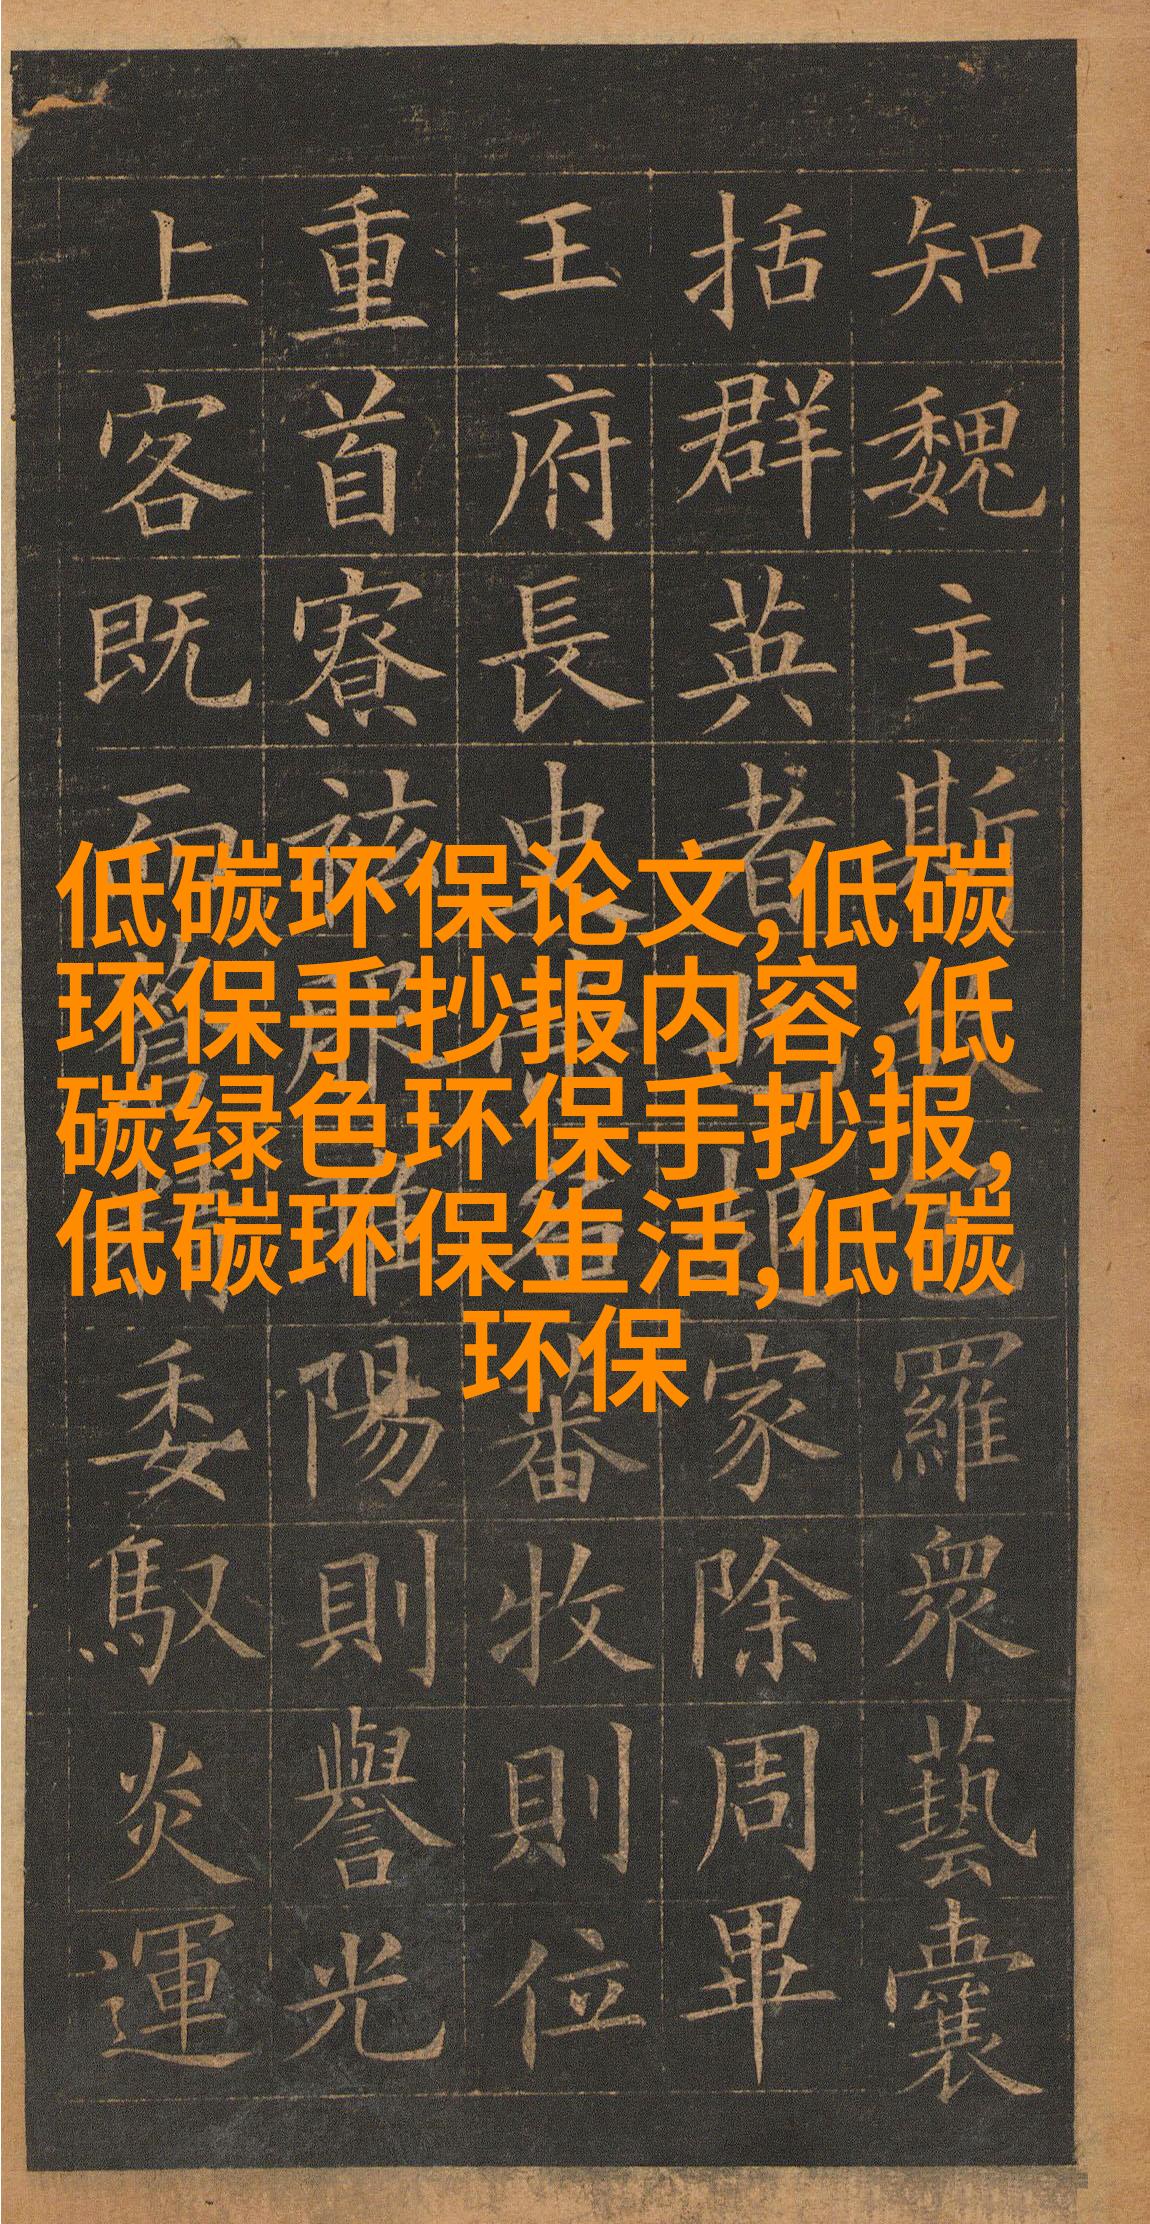 知魏主斯羅眾藝囊
括群英者也起家除周畢
王府長史蕃牧則位
重首寮陽則譽光
上客既而委馭炎運
低碳环保论文,低碳
环保手抄报内容,低
碳绿色环保手抄报,
低碳环保生活,低碳
环保